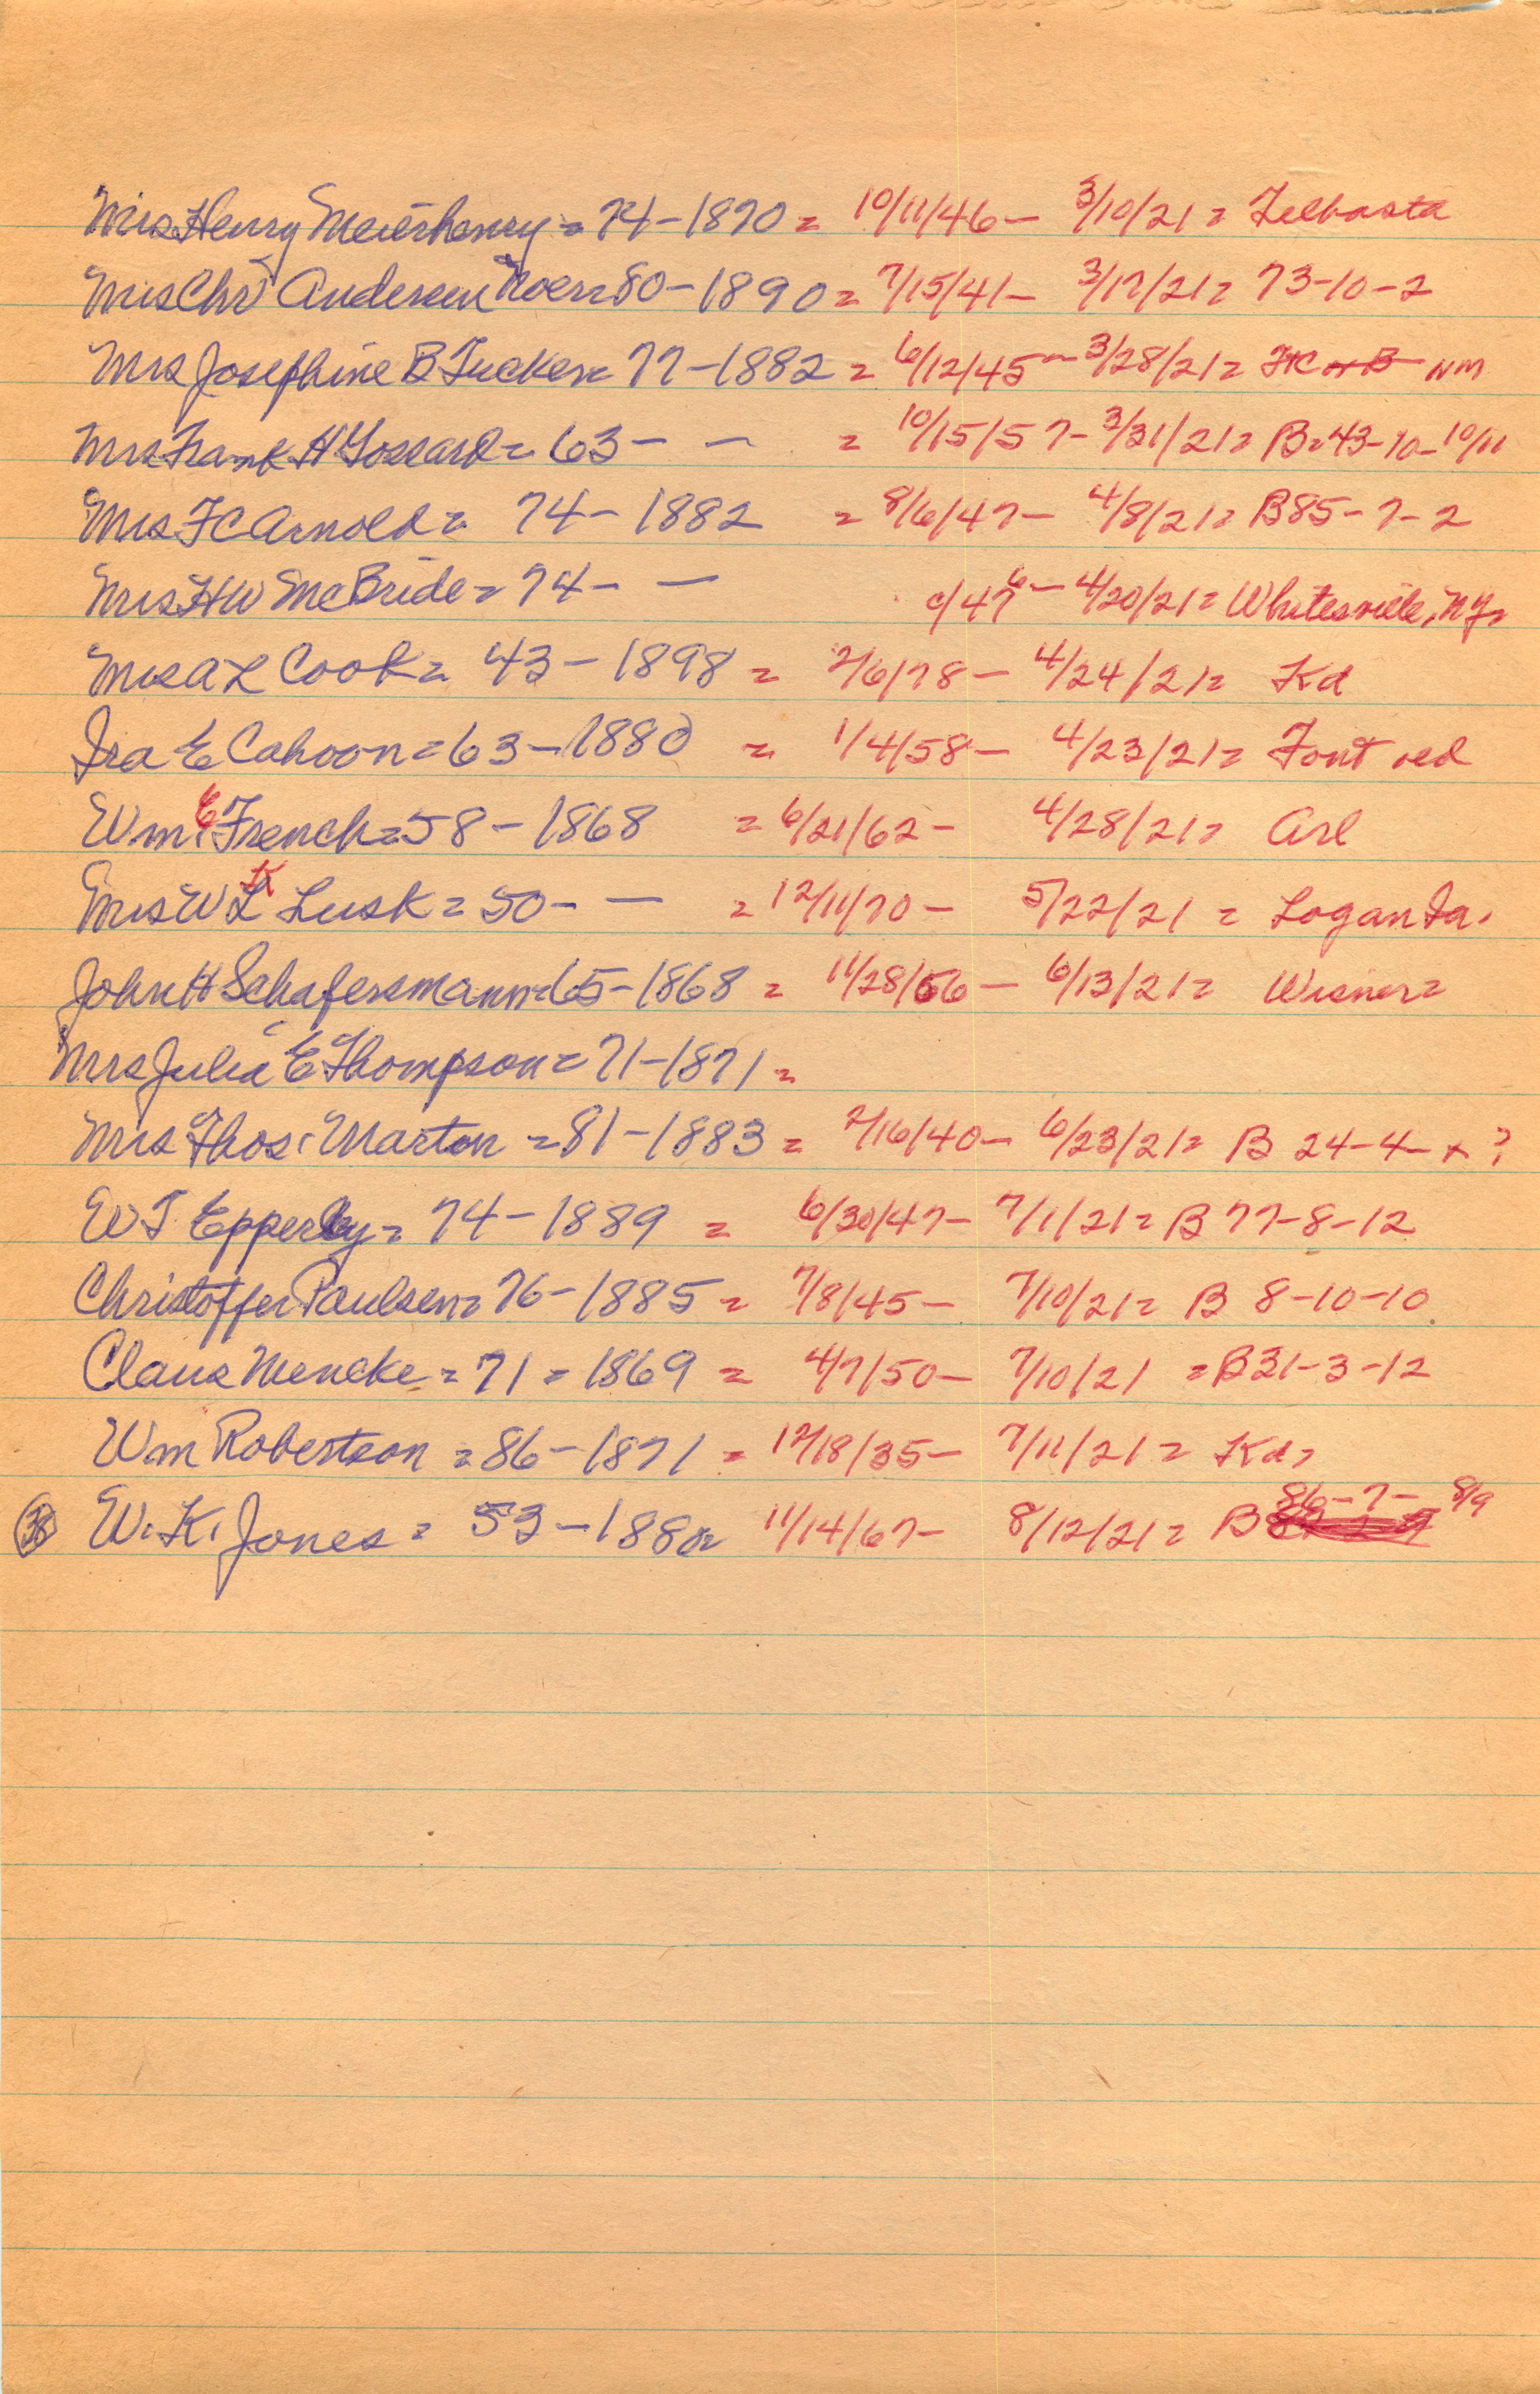 Mrs Henry Meierhenry = 74 - 1870 = 10/11/46 - 3/10/21 = Telbasta
Mrs Chr Andersen Koer = 80 - 1890 = 7/15/41 - 3/17/21 = 73-10-2
Mrs Josephine B Tucker = 77 - 1882 = 6/12/45 - 3/28/21 = NM
Mrs Frank H Gossard = 63 - - = 10/15/57 - 3/31/21 = B = 43-10-10/11
Mrs FC Arnold = 74 - 1882 = 8/6/47 - 4/8/21 = B85-7-2
Mrs HW McBride = 74 - - c/47 6 - 4/20/21 = Whitesville, NY =
Mrs A L Cook = 43 - 1898 = 2/6/78 - 4/24/21 = Kd
Ira E Cahoon = 63 - 1880 = 1/4/58 - 4/23/21 = Font red
Wm E French = 58 - 1868 = 6/21/62 - 4/28/21 = Arl
Mrs W K Lusk = 50 - - = 12/11/70 - 5/22/21 = Logan Ia.
John H Schafersmann = 65 - 1868 = 11/28/56 - 6/13/21 = Wisner =
Mrs Julia E Thompson = 71 - 1871 =
Mrs Thos. Martin = 81 - 1883 = 2/16/40 - 6/23/21 = B 24-4-x?
WT Epperly = 74 - 1889 = 6/30/47 - 7/1/21 = B 77-8-12
Christoffer Paulsen = 76 - 1885 = 7/8/45 - 7/10/21 = B 8-10-10
Claus Mencke = 71 = 1869 = 4/7/50 - 7/10/21 = B31-3-12
Wm Robertson = 86 - 1871 = 12/18/35 - 7/11/21 = Kd =
38 W. K. Jones = 53 - 1880 = 11/14/67 - 8/12/21 = B 86-7-8/9